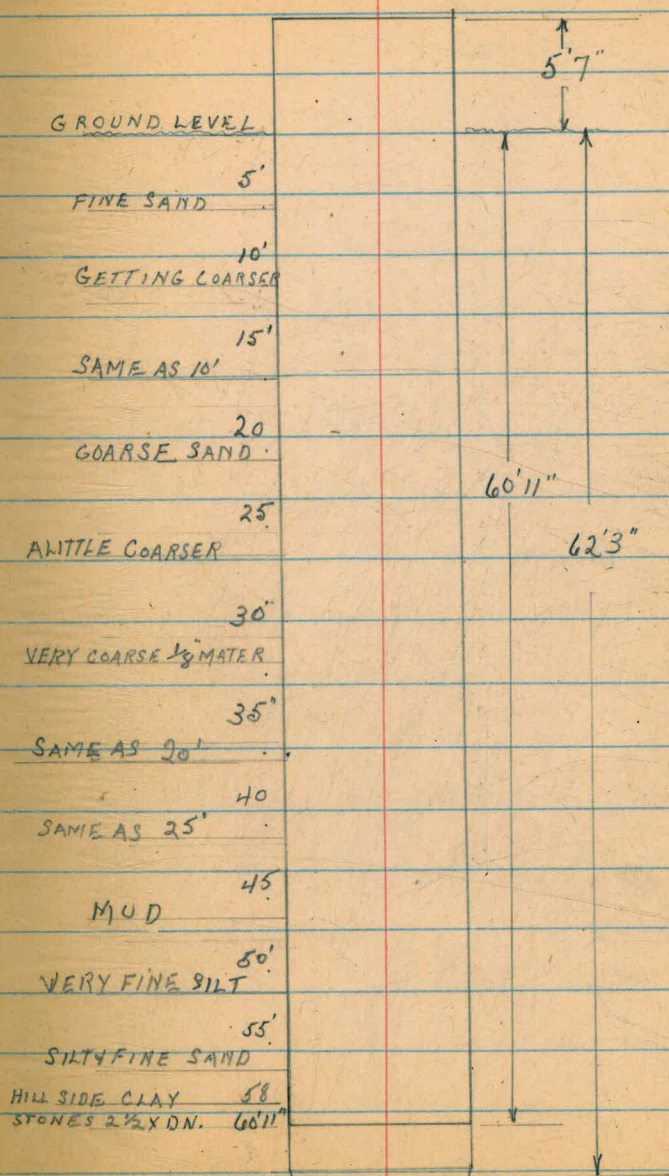 5'7"
GROUND LEVEL
5'
FINE SAND
10'
GETTING COARSER
15'
SAME AS 10'
20
GOARSE SAND
60'11"
25
62'3"
ALITTLE COARSER
30"
VERY COARSE 1/8" MATER
35"
SAME AS 20'
40
SAME AS 25'
45
MUD
50'
VERY FINE SILT
55'
SILTY FINE SAND
HILL SIDE CLAY 58
STONES 2 1/2 X DN. 60'11"